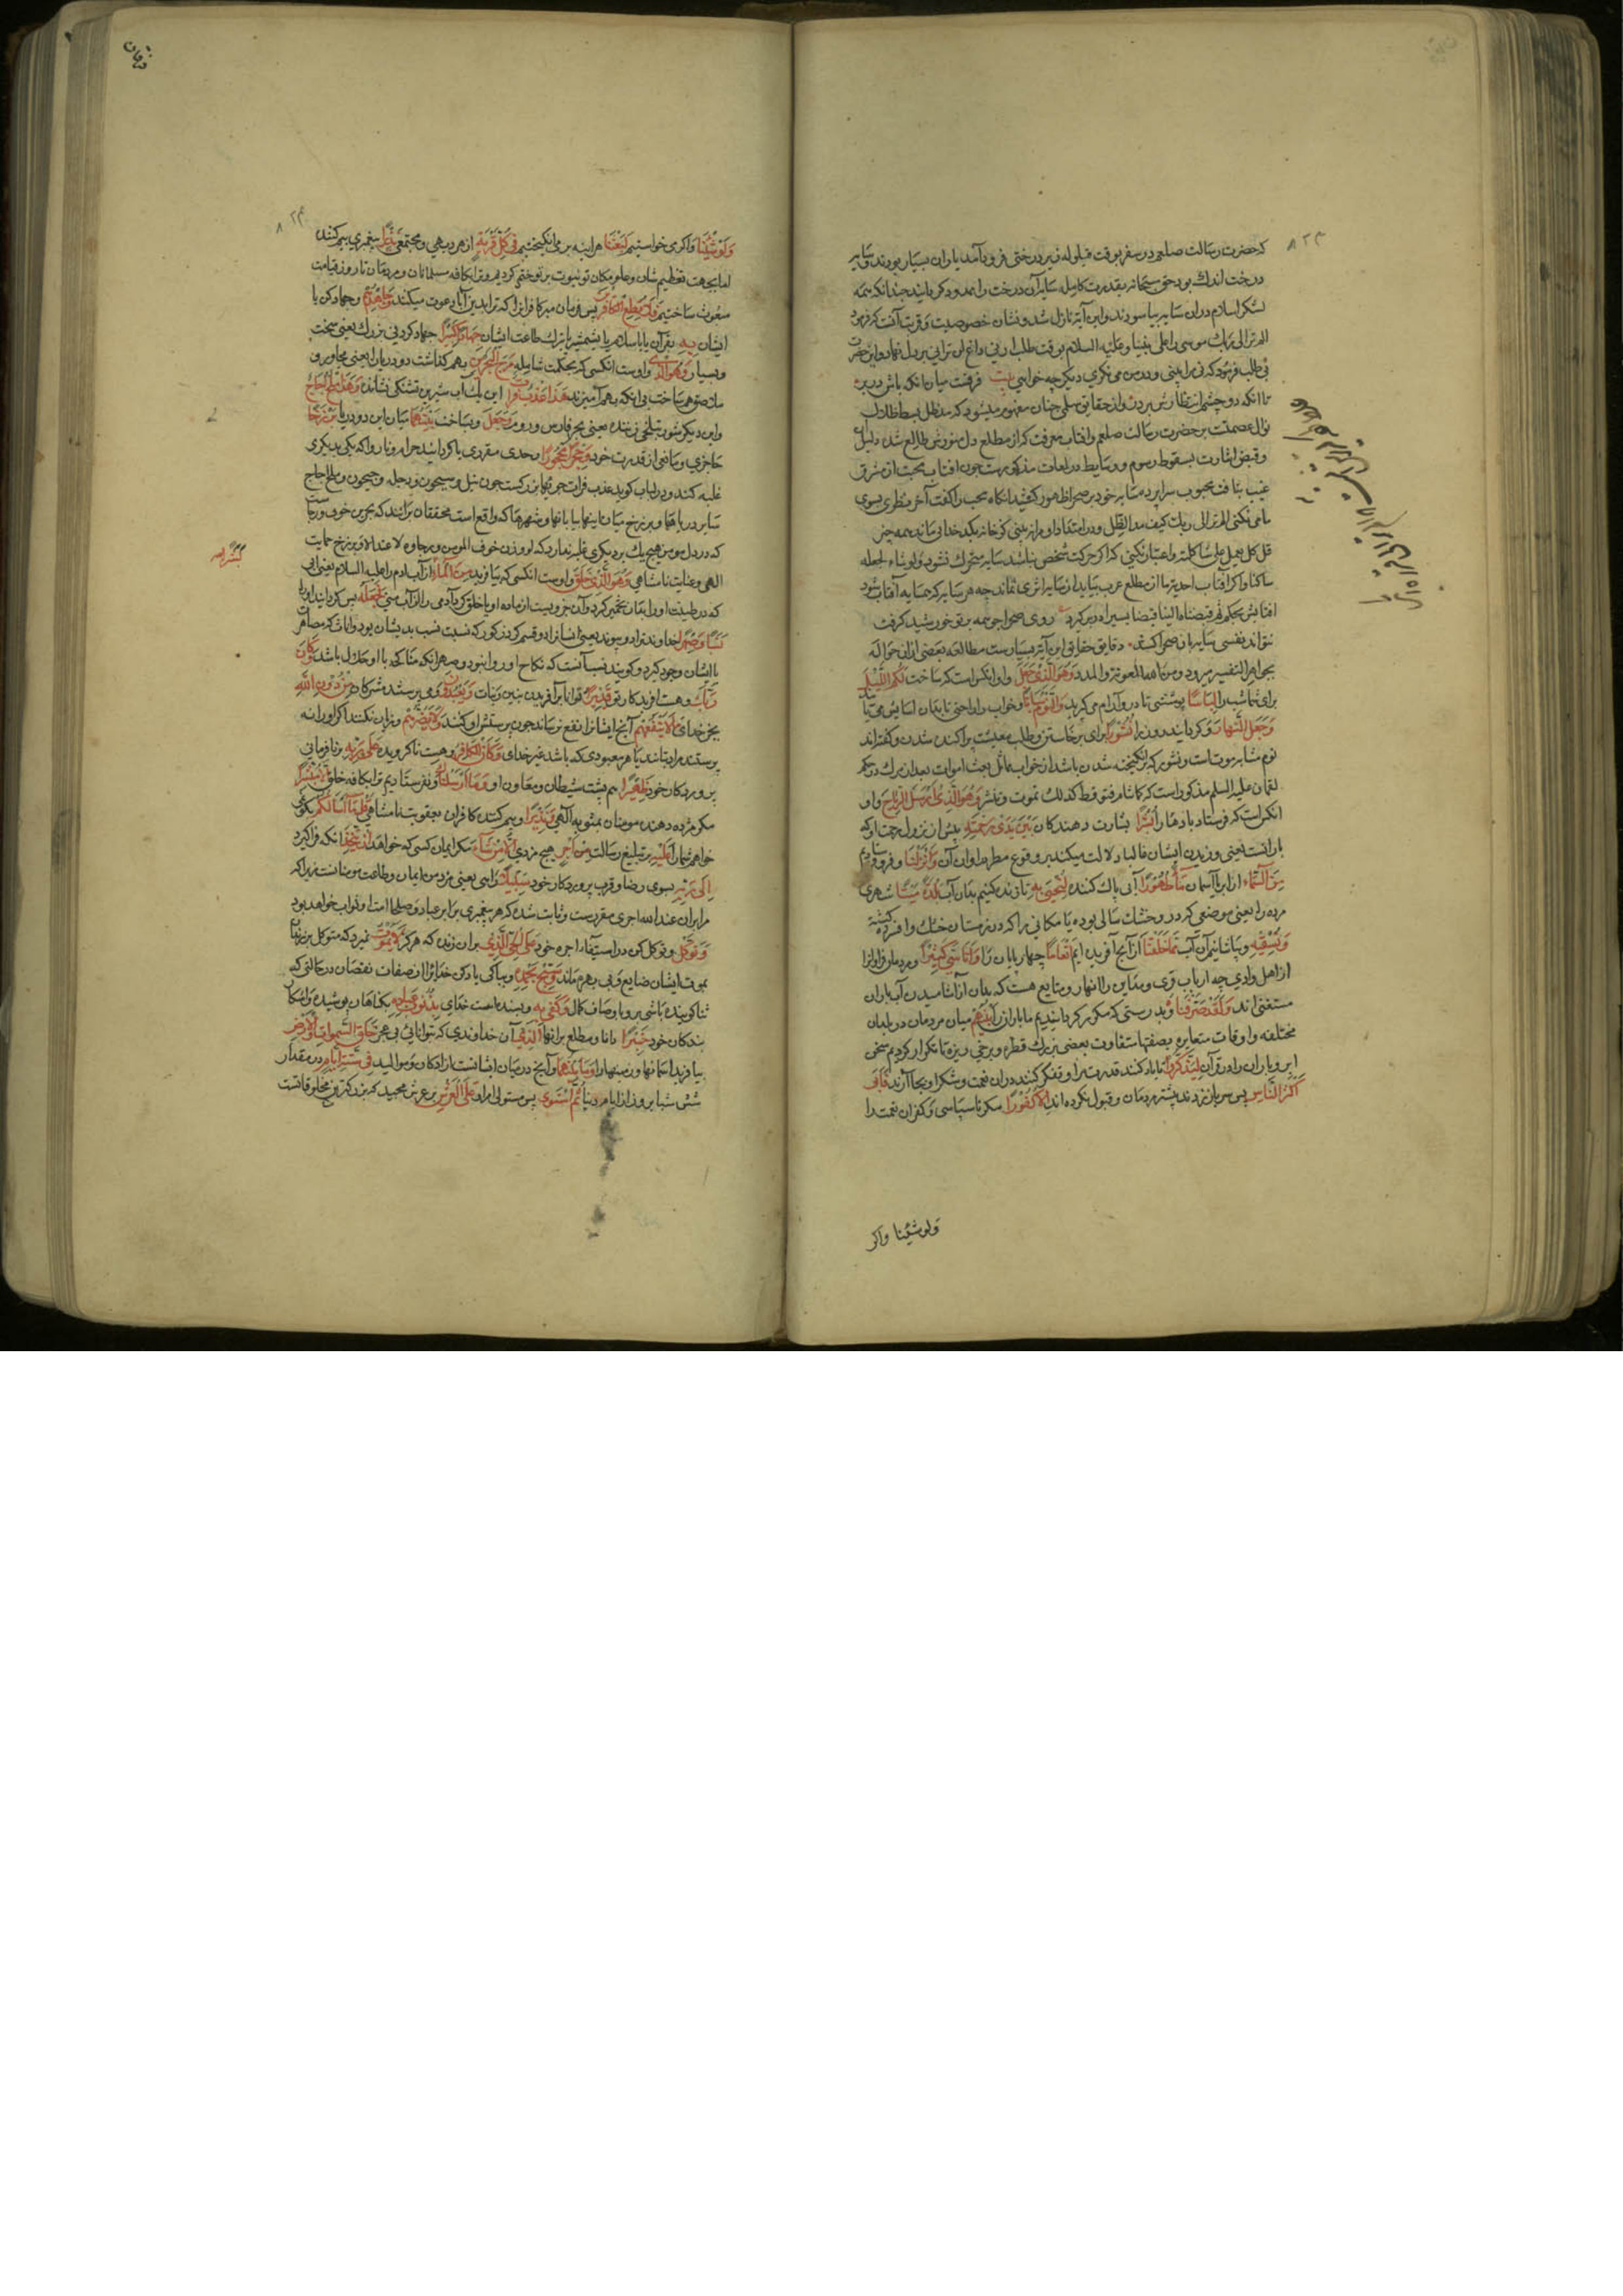 که حضرت رسالت صلعم در سفر بوقت قیلوله زیر درختی فرود آمد یاران بسیار بودند و سایه
درخت اندک بود حق سبحانه بقدرت کامل سایه آن درخت را ممدود کردانید چندانکه همه
لشکر اسلام در ان سایه بیاسودند و این آیة نازل شد و نشان خصوصیت و قربت آنست که فرمود
الم تر الی ربک موسی را علی نبینا و علیه السلام بوقت طلب ارنی داغ لن ترانی بر دل نهاد و این حضرت
بی طلب فرمود که نی مرا بینی و در من می نکری دیکر چه خواهی فرقست میان انکه یارش در بر
تا انکه دو چشم انتظارش بر در و از حقایق سلمی چنان مفهوم میشود که مد ظل بسط ظلال
نوال عصمتست بر حضرت رسالت صلعم و افتاب معرفت که از مطلع دل منورش طالع شد دلیل
و قبض اشارت بسقوط رسوم و وسایط در لمعات مذکورست چون افتاب محبت از مشرق
غیب بتافت محبوب سراپرده سایه خود بر صحرا ظهور کشید انکاه محب را کفت آخر نظری بسوی
ما می نکنی الم تر الی ربک کیف مد الظل و در امتداد او مرا نه بینی کو خانه بکد خدای ماند همه چیز
قل کل یعمل علی شاکلته و اعتبار نکنی که اکر حرکت شخص نباشد سایه متحرک نشود ولو شاء لجعله
ساکنا و اکر آفتاب احدیت ما از مطلع عزت بتابد از سایه اثری نماند چه هر سایه که همسایه آفتاب شود
افتابش بحکم ثم قبضناه الینا قبضا یسیرا در بر کیرد روی صحرا چو همه پرتو خورشید کرفت
نتواند نفسی سایه بان صحرا کشد دقایق حقایق این آیة بسیارست مطالعه بعضی از ان حواله
بجواهر التفسیر میرود و من الله المعونة والمدد وَهُوَ الَّذِی جَعَلَ و او انکس است که ساخت لَکُمُ اللَّیْلَ
برای شما شب را لِبَاسًا پوششی تا در و آرام می کیرید وَالنَّوْمَ سُبَاتًا و خواب را راحتی تا بدان اسایش می یابد
وَجَعَلَ النَّهَارَ و کردانید روز را نُشُورًا برای برخاستن و طلب معیشت پراکنده شدن و کفته اند
نوم مشابه موتست و نشور که برانکیخته شدن باشد از خواب مماثل بعث اموات بعد از مرک در حکم
لقمان علیه السلم مذکور است که کما تنام فتوقظ کذلک تموت و تنشر وَهُوَ الَّذِی أَرْسَلَ الرِّیَاحَ و او
انکس است که فرستاد بادها را بُشْرًا بشارت دهندکان بَیْنَ یَدَیْ رَحْمَتِهِ پیش از نزول رحمت او که
بارانست یعنی وزیدن ایشان غالبا دلالت میکند بر وقوع مطر در اوان آن وَأَنْزَلْنَا و فرو فرستادیم
مِنَ السَّمَاءِ از ابر یا آسمان مَاءً طَهُورًا آبی پاک کننده لِنُحْیِیَ بِهِ تا زنده کنیم بدان آب بَلْدَةً مَیْتًا شهری
مرده را یعنی موضعی که در و خشک سالی بوده یا مکانی را که در زمستان خشک و افسرده کشته
وَنُسْقِیَهُ و بیاشامانیم آن آب مِمَّا خَلَقْنَا از آنچ آفریده ایم أَنْعَامًا چهارپایان را وَأَنَاسِیَّ کَثِیرًا و مردمان فراوان را
از اهل وادی چه ارباب قری و مداین را انهار و منابع هست که بدان از آشامیدن آب باران
مستغنی اند وَلَقَدْ صَرَّفْنَاهُ و بدرستی که مکرر کردانیدیم ما باران را بَیْنَهُمْ میان مردمان در بلدان
مختلفه و اوقات متغایره بصفتها متفاوت بعضی بزرک قطره و برخی ریزه تا تکرار کردیم سخن
ابر و باران را در قرآن لِیَذَّکَّرُوا تا یاد کنند قدرت مرا و تفکر کنند در ان نعمت و شکر او بجا آرند فَأَبَى
أَکْثَرُ النَّاسِ پس سر باز زدند بیشتر مردمان و قبول نکرده اند إِلَّا کُفُورًا مکر ناسپاسی و کفران نعمت را
ولو شئنا و اکر
فرقان
وَلَوْ شِئْنَا و اکر می خواستیم لَبَعَثْنَا هر اینه بر می انکیختیم فِی کُلِّ قَرْیَةٍ از هر دیهی و مجتمعی نَذِیرًا پیغمبری بیم کننده
اما بجهت تعظیم شان و علو مکان تو نبوت بر تو ختم کردیم و ترا بکافه مسلمانان و مردمان تا روز قیامت
مبعوث ساختیم فَلَا تُطِعِ الْکَافِرِینَ پس فرمان مبر کافرانرا که ترا بدین آبا دعوت میکنند وَجَاهِدْهُمْ و جهاد کن با
ایشان بِهِ بقرآن یا باسلام یا بشمشیر یا بترک طاعت ایشان جِهَادًا کَبِیرًا جهاد کردنی بزرک یعنی سخت
و بسیار وَهُوَ الَّذِی و اوست انکسی که بحکمت شامله مَرَجَ الْبَحْرَیْنِ بهم کذاشت دو دریا را یعنی مجاور و
ملاصق هم ساخت بی انکه بهم آمیزند هَذَا عَذْبٌ فُرَاتٌ این یک آب شیرین تشنکی نشاننده وَهَذَا مِلْحٌ أُجَاجٌ
و این دیکر شور تبلخی زننده یعنی بحر فارس و روم وَجَعَلَ و بساخت بَیْنَهُمَا میان این دو دریا بَرْزَخًا
حاجزی و مانعی از قدرت خود وَحِجْرًا مَحْجُورًا و حدی مقرر یا کردانید حرام و ناروا که یکی بدیکری
غلبه کند و در لباب کوید عذب فرات جویها بزرکست چون نیل و سیحون و دجله و جیحون و ملح اجاج
سایر دریاها و برزخ میان اینها بیابانها و شهرها که واقع است محققان برانند که بحرین خوف و رجاست
که در دل مومن هیچ یک بر دیکری غلبه ندارد که لو وزن خوف المومن و رجاوه لاعتدلا و برزخ حمایت
الهی و عنایت نامتناهی وَهُوَ الَّذِی خَلَقَ و اوست انکسی که بیافرید مِنَ الْمَاءِ از آب ادم را علیه السلام یعنی ابی
که در طینت او را بدان تخمیر کرد و آن جزویست از ماده او یا خلق کرد آدمی را از آب منی فَجَعَلَهُ پس کردانید او را
نَسَبًا وَصِهْرًا خداوند نژاد و پیوند یعنی انسانرا دو قسم کرد ذکور که نسبت نسب بدیشان بود و اناث که مصاهرت
باایشان وجود کیرد و کویند نسب آنست که نکاح او روا نبود و صهر انکه مناکحه با او حلال باشد وَکَانَ
رَبُّکَ و هست افریدکار تو قَدِیرًا توانا بر آفریدن بنین و بنات وَیَعْبُدُونَ و می پرستند مشرکان مِنْ دُونِ اللَّهِ
بجز خدای مَا لَا یَنْفَعُهُمْ آنچ ایشانرا نفع نرساند چون پرستش او کنند وَلَا یَضُرُّهُمْ و زیان نکند اکر او را نه
پرستند مراد بتانند یا هر معبودی که باشد غیر خدای وَکَانَ الْکَافِرُ و هست ناکرویده عَلَى رَبِّهِ بر نافرمانی
پروردکار خود ظَهِیرًا هم پشت شیطان و معاون او وَمَا أَرْسَلْنَاکَ و نفرستادیم ترا بکافه خلق إِلَّا مُبَشِّرًا
مکر مژده دهنده مومنان بمثوبه الهی وَنَذِیرًا و بیم کننده کافران بعقوبت نامتناهی قُلْ مَا أَسْأَلُکُمْ بکو نمی
خواهم شما را عَلَیْهِ بر تبلیغ رسالت مِنْ أَجْرٍ هیچ مزدی إِلَّا مَنْ شَاءَ مکر ایمان کسی که خواهد أَنْ یَتَّخِذَ انکه فراکیرد
إِلَى رَبِّهِ بسوی رضا و قرب پروردکار خود سَبِیلًا راهی یعنی مزد من ایمان و طاعت مومنانست زیرا که
مرا بران عند الله اجری مقررست و ثابت شده که هر پیغمبری را برابر عباد و صلحا امت او ثواب خواهد بود
وَتَوَکَّلْ و توکل کن در استیفاء اجره خود عَلَى الْحَیِّ الَّذِی بران زنده که هرکز لَا یَمُوتُ نمیرد که متوکل بر زندکان
بموت ایشان ضایع و بی بهره ماند وَسَبِّحْ بِحَمْدِهِ و بپاکی یاد کن خدایرا از صفات نقصان در حالتی که
ثنا کوینده باشی برو باوصاف کمال وَکَفَى بِهِ و بسنده است خدای بِذُنُوبِ عِبَادِهِ بکناهان پوشیده و اشکار
بندکان خود خَبِیرًا دانا و مطلع برانها الَّذِی آن خداوندی که بتوانایی بی عجز خَلَقَ السَّمَوَاتِ وَالْأَرْضَ
بیافرید اسمانها و زمینها را وَمَا بَیْنَهُمَا و آنچ در میان ایشانست از ارکان و موالید فِی سِتَّةِ أَیَّامٍ در مقدار
شش شبانروز از ایام دنیا ثُمَّ اسْتَوَى پس مستولی امر او عَلَى الْعَرْشِ بر عرش مجید که بزرکترین مخلوقاتست